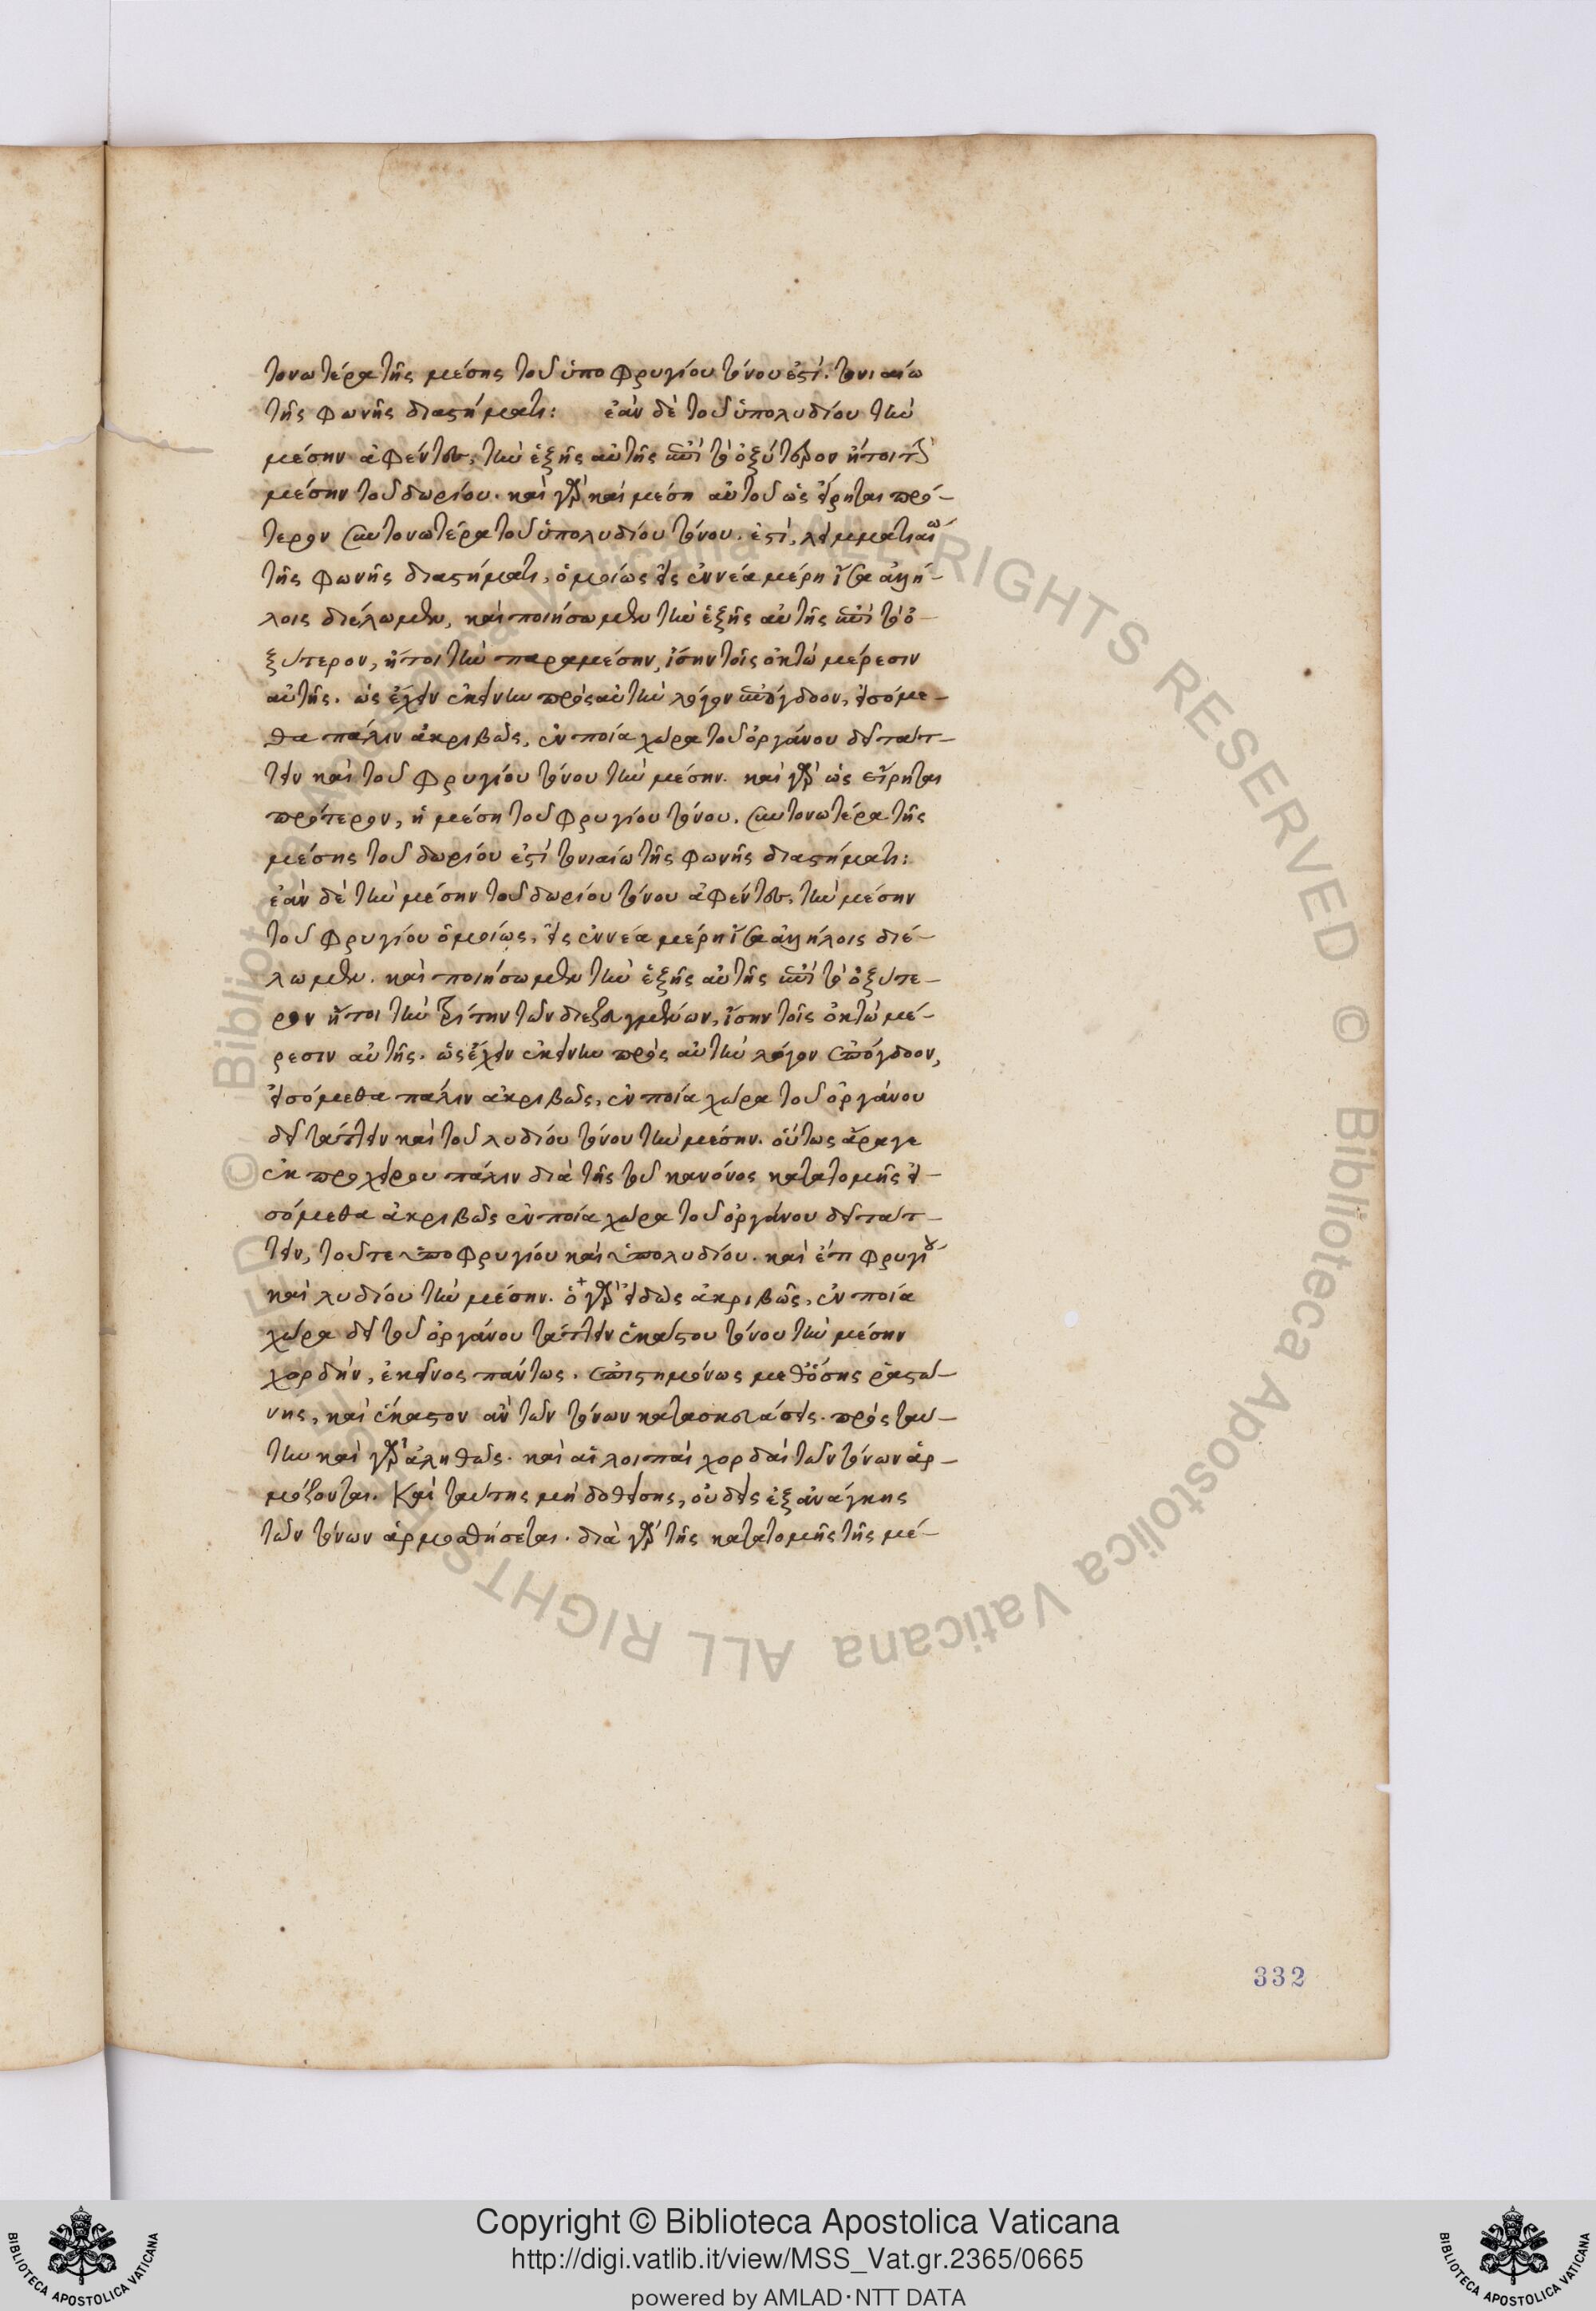 τονωτέρα τῆς μέσης τοῦ ὑποφρυγίου τόνου ἐστί. τονιαίω
τῆς φωνῆς διαστήματι: ἐὰν δὲ τοῦ ὑπολυδίου τὴν
μέσην ἀφέντες, τὴν ἑξῆς αὐτῆς ἐπὶ τὸ ὀξύτερον ἤτοι τὴν
μέσην τοῦ δωρίου. καὶ γὰρ καὶ μέση αὐτοῦ ὡς εἴρηται πρό-
τερον συντονωτέρα τοῦ ὑπολυδίου τόνου. ἐστὶ, λειμματιαίω
τῆς φωνῆς διαστήματι, ὁμοίως εἰς ἐννέα μέρη ἴσα ἀλλή-
λοις διέλωμεν, καὶ ποιήσωμεν τὴν ἑξῆς αὐτῆς ἐπὶ τὸ ὀ-
ξύτερον, ἤτοι τὴν παραμέσην, ἴσην τοῖς ὀκτὼ μέρεσιν
αὐτῆς. ὡς ἔχειν ἐκείνην πρὸς αὐτὴν λόγον ἐπόγδοον, εἰσόμε-
θα πάλιν ἀκριβῶς, ἐν ποία χώρα τοῦ ὀργάνου δεῖ τάτ-
τειν καὶ τοῦ φρυγίου τόνου τὴν μέσην. καὶ γὰρ ὡς εἴρηται
πρότερον, ἡ μέση τοῦ φρυγίου τόνου. συντονωτέρα τῆς
μέσης τοῦ δωρίου ἐστὶ τονιαίω τῆς φωνῆς διαστήματι:
ἐὰν δὲ τὴν μέσην τοῦ δωρίου τόνου ἀφέντες, τὴν μέσην
τοῦ φρυγίου ὁμοίως, εἰς ἐννέα μέρη ἴσα ἀλλήλοις διέ-
λωμεν. καὶ ποιήσωμεν τὴν ἑξῆς αὐτῆς ἐπὶ τὸ ὀξύτε-
ρον ἤτοι τὴν τρίτην τῶν διεζευγμένων, ἴσην τοῖς ὀκτὼ μέ-
ρεσιν αὐτῆς. ὡς ἔχειν ἐκείνην πρὸς αὐτὴν λόγον ἐπόγδοον,
εἰσόμεθα πάλιν ἀκριβῶς, ἐν ποία χώρα τοῦ ὀργάνου
δεῖ τάττειν καὶ τοῦ λυδίου τόνου τὴν μέσην. οὕτως ἄραγε
ἐκ προχείρου πάλιν διὰ τῆς τοῦ κανόνος κατατομῆς εἰ-
σόμεθα ἀκριβῶς ἐν ποία χώρα τοῦ ὀργάνου δεῖ τάτ-
τειν, τοῦτε ὑποφρυγίου καὶ ὑπολυδίου. καὶ ἔτι φρυγίου
καὶ λυδίου τὴν μέσην. ὁ γὰρ εἰδὼς ἀκριβῶς, ἐν ποία
χώρα δεῖ τοῦ ὀργάνου τάττειν ἑκάστου τόνου τὴν μέσην
χορδὴν, ἐκεῖνος πάντως. ἐπιστημόνως μεθόσης ῥαστώ-
νης, καὶ ἕκαστον ἂν τῶν τόνων κατασκευάσειε. πρὸς ταύ-
την καὶ γὰρ ἀληθῶς. καὶ αἱ λοιπαὶ χορδαὶ τῶν τόνων ἁρ-
μόζονται. Καὶ ταύτης μὴ δοθείσης, οὐδεὶς ἐξ ἀνάγκης
τῶν τόνων ἁρμοσθήσεται. διὰ γὰρ τῆς κατατομῆς τῆς μέ-
332
© Biblioteca Apostolica Vaticana ALL RIGHTS RESERVED © Biblioteca Apostolica Vaticana ALL RIGHTS RESERVED
Copyright © Biblioteca Apostolica Vaticana
http://digi.vatlib.it/view/MSS_Vat.gr.2365/0665
powered by AMLAD·NTT DATA
BIBLIOTECA APOSTOLICA VATICANA
BIBLIOTECA APOSTOLICA VATICANA